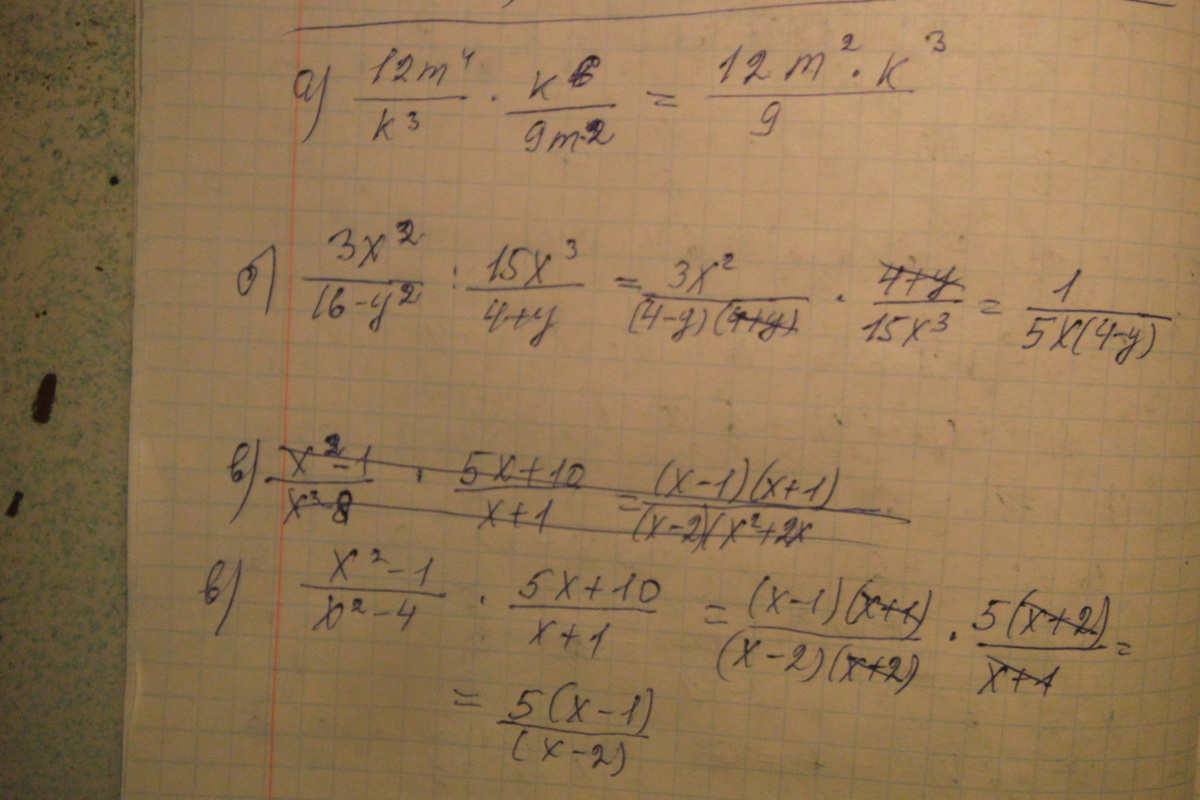 а) 12m⁴/k³ · k⁶/9m² = 12m²·k³/9
б) 3x²/16-y² : 15x³/4+y = 3x²/(4-y)(4+y) · 4+y/15x³ = 1/5x(4-y)
в) x²-1/x³-8 · 5x+10/x+1 = (x-1)(x+1)/(x-2)(x²+2x
в) x²-1/x²-4 · 5x+10/x+1 = (x-1)(x+1)/(x-2)(x+2) · 5(x+2)/x+1 =
= 5(x-1)/(x-2)